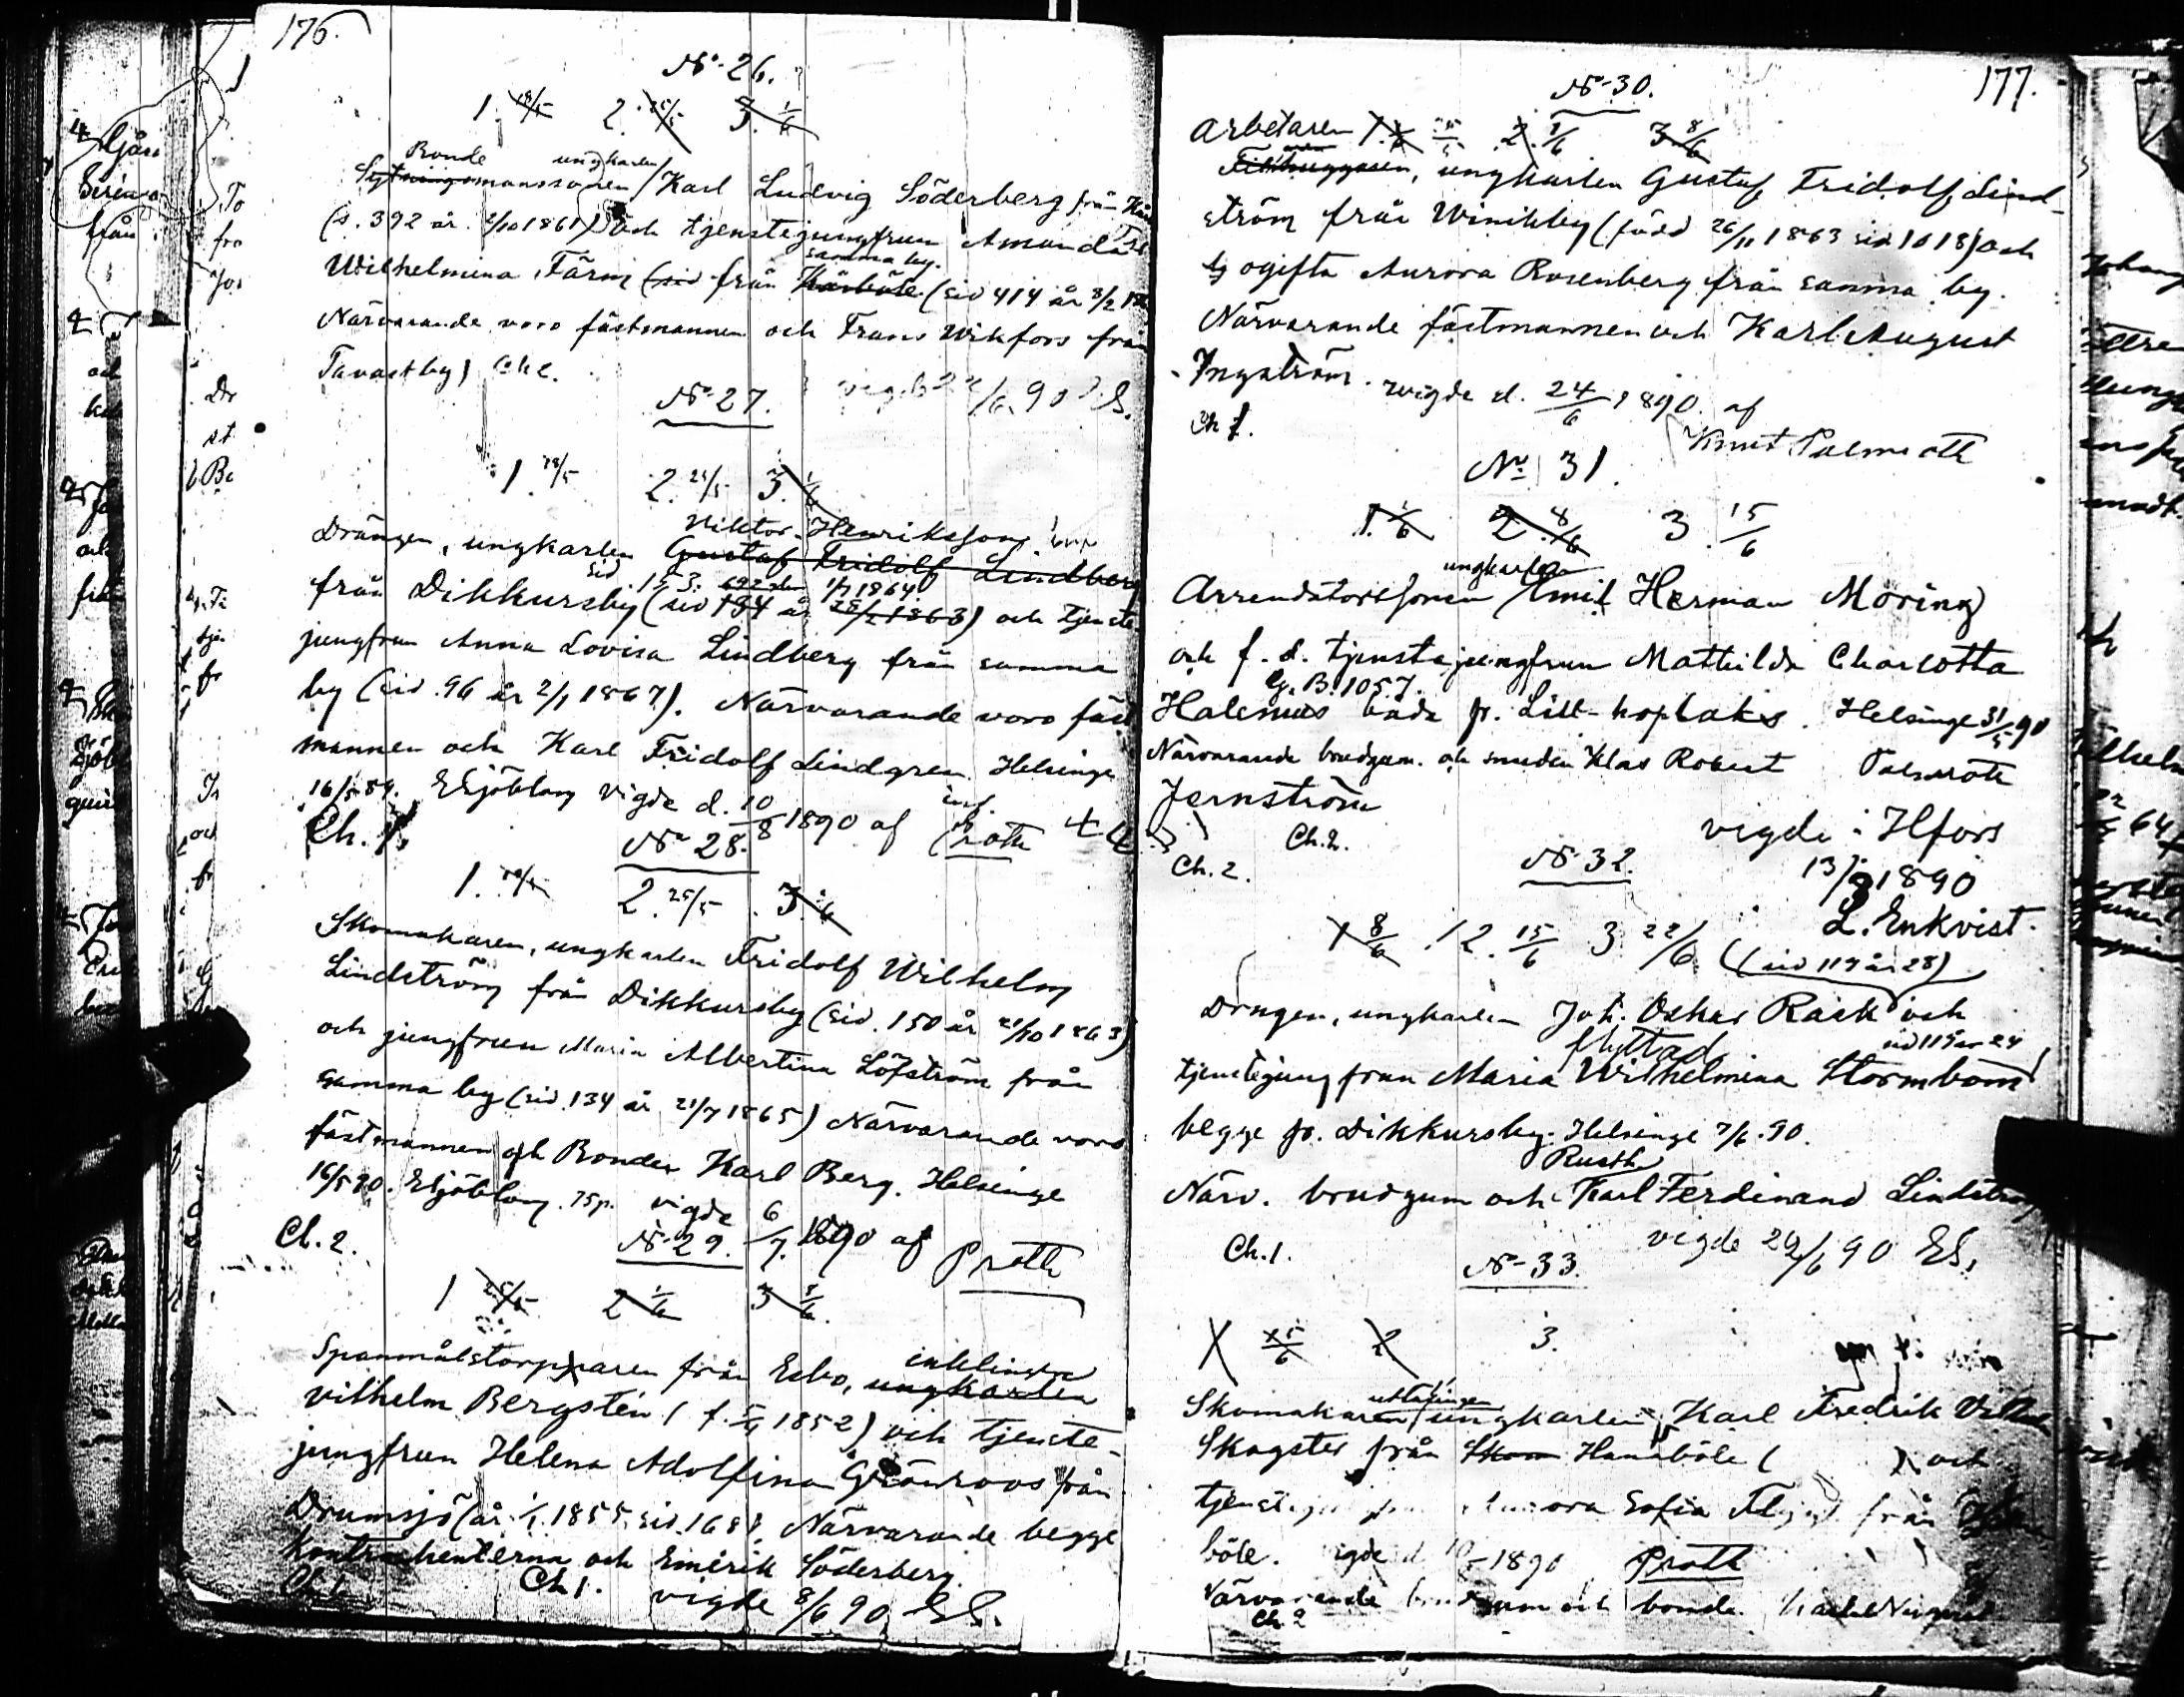 176.
No 26.
1. 18/5 2. 25/5 3. 1/6
Bonde ungkarlen
Sytningsmanssonen Karl Ludvig Söderberg från
(s. 392 år. 2/10 1861) och tjenstejungfrun Amanda
samma by.
Wilhelmina Färm (sid från Kårböle (sid 414 år 3/2
Närvarande voro fästmannen och Frans Wikfors från
Tavastby) Ch 2.
No 27.
1. 18/5 2. 25/5 3. 1/6
Viktor Henriksson
Drängen, ungkarlen Gustaf Fridolf Lindberg
sid 153. 1/7 1864.
från Dikkursby (sid 194 år 28/2 1863) och tjenste-
jungfrun Anna Lovisa Lindberg från samma
by (sid. 96 år 2/1 1867). Närvarande voro fäst
mannen och Karl Fridolf Lindgren. Helsinge
16/5 89. ESjöblom vigde d. 10/8 1890 af Proth
Ch. 1.
No 28.
1. 18/5 2. 25/5 3. 1/6
Skomakaren, ungkarlen Fridolf Wilhelm
Lindström från Dikkursby (sid. 150 år 21/10 1863)
och jungfrun Maria Albertina Löfström från
samma by (sid. 134 år 21/7 1865) Närvarande voro
fästmannen och Bonden Karl Berg. Helsinge
16/5 90. ESjöblom. 75p. vigde 6/7. 1890 af
Proth
Ch. 2.
No 29.
1 25/5 2 1/6 3 8/6
Spanmålstorpparen från Esbo, enklingen
ungkarlen
Vilhelm Bergstén (f. 5/4 1852) och tjenste-
jungfrun Helena Adolfina Grönroos från
Drumsjö (år 1/1. 1855. sid. 168). Närvarande begge
kontrahenterna och Emerik Söderberg.
Ch 1. vigde 8/6 90 ES.
177.
No 30.
Arbetaren 1. 2. 1/6 3 8/6
ungkarlen Gustaf Fridolf Lind-
ström från Winikby (född 26/11 1863 sid 1018) och
ogifta Aurora Rosenberg från samma by.
Närvarande fästmannen och Karl August
Ingström. vigde d. 24/6 1890. af
Knut Palmroth
Ch 1.
No 31.
1. 1/6 2. 8/6 3. 15/6
ungkarlen
Arrendatorssonen Emil Herman Möring
och f. d. tjenstejungfrun Mathilda Charlotta
Lg. B. 1057.
Halenius båda fr. Lill-hoplaks. Helsinge 31/5 90
Närvarande brudgum. och smeden Klas Robert Palmroth
Jernström
Ch. 2. vigde i Hfors
13/7 1890
L. Enkvist.
Ch. 2.
No 32.
1 8/6 2. 15/6 3 22/6 (sid 119 år 28)
Drängen, ungkarlen Joh. Oskar Rask och
flyttad sid 119 år 24
tjenstejungfrun Maria Wilhelmina Stormbom
begge fr. Dikkursby. Helsinge 7/6. 90.
Rusth.
Närv. brudgum och Karl Ferdinand Lindström
Ch. 1. vigde 29/6 90 ES.
No 33.
1 15/6 2 3.
Skomakaren ungkarlen Karl Fredrik
Skogster från Hanaböle ( ) och
Sofia från
böle. vigde d 1890 Proth
Närvarande brudgum och bonde
Ch. 2